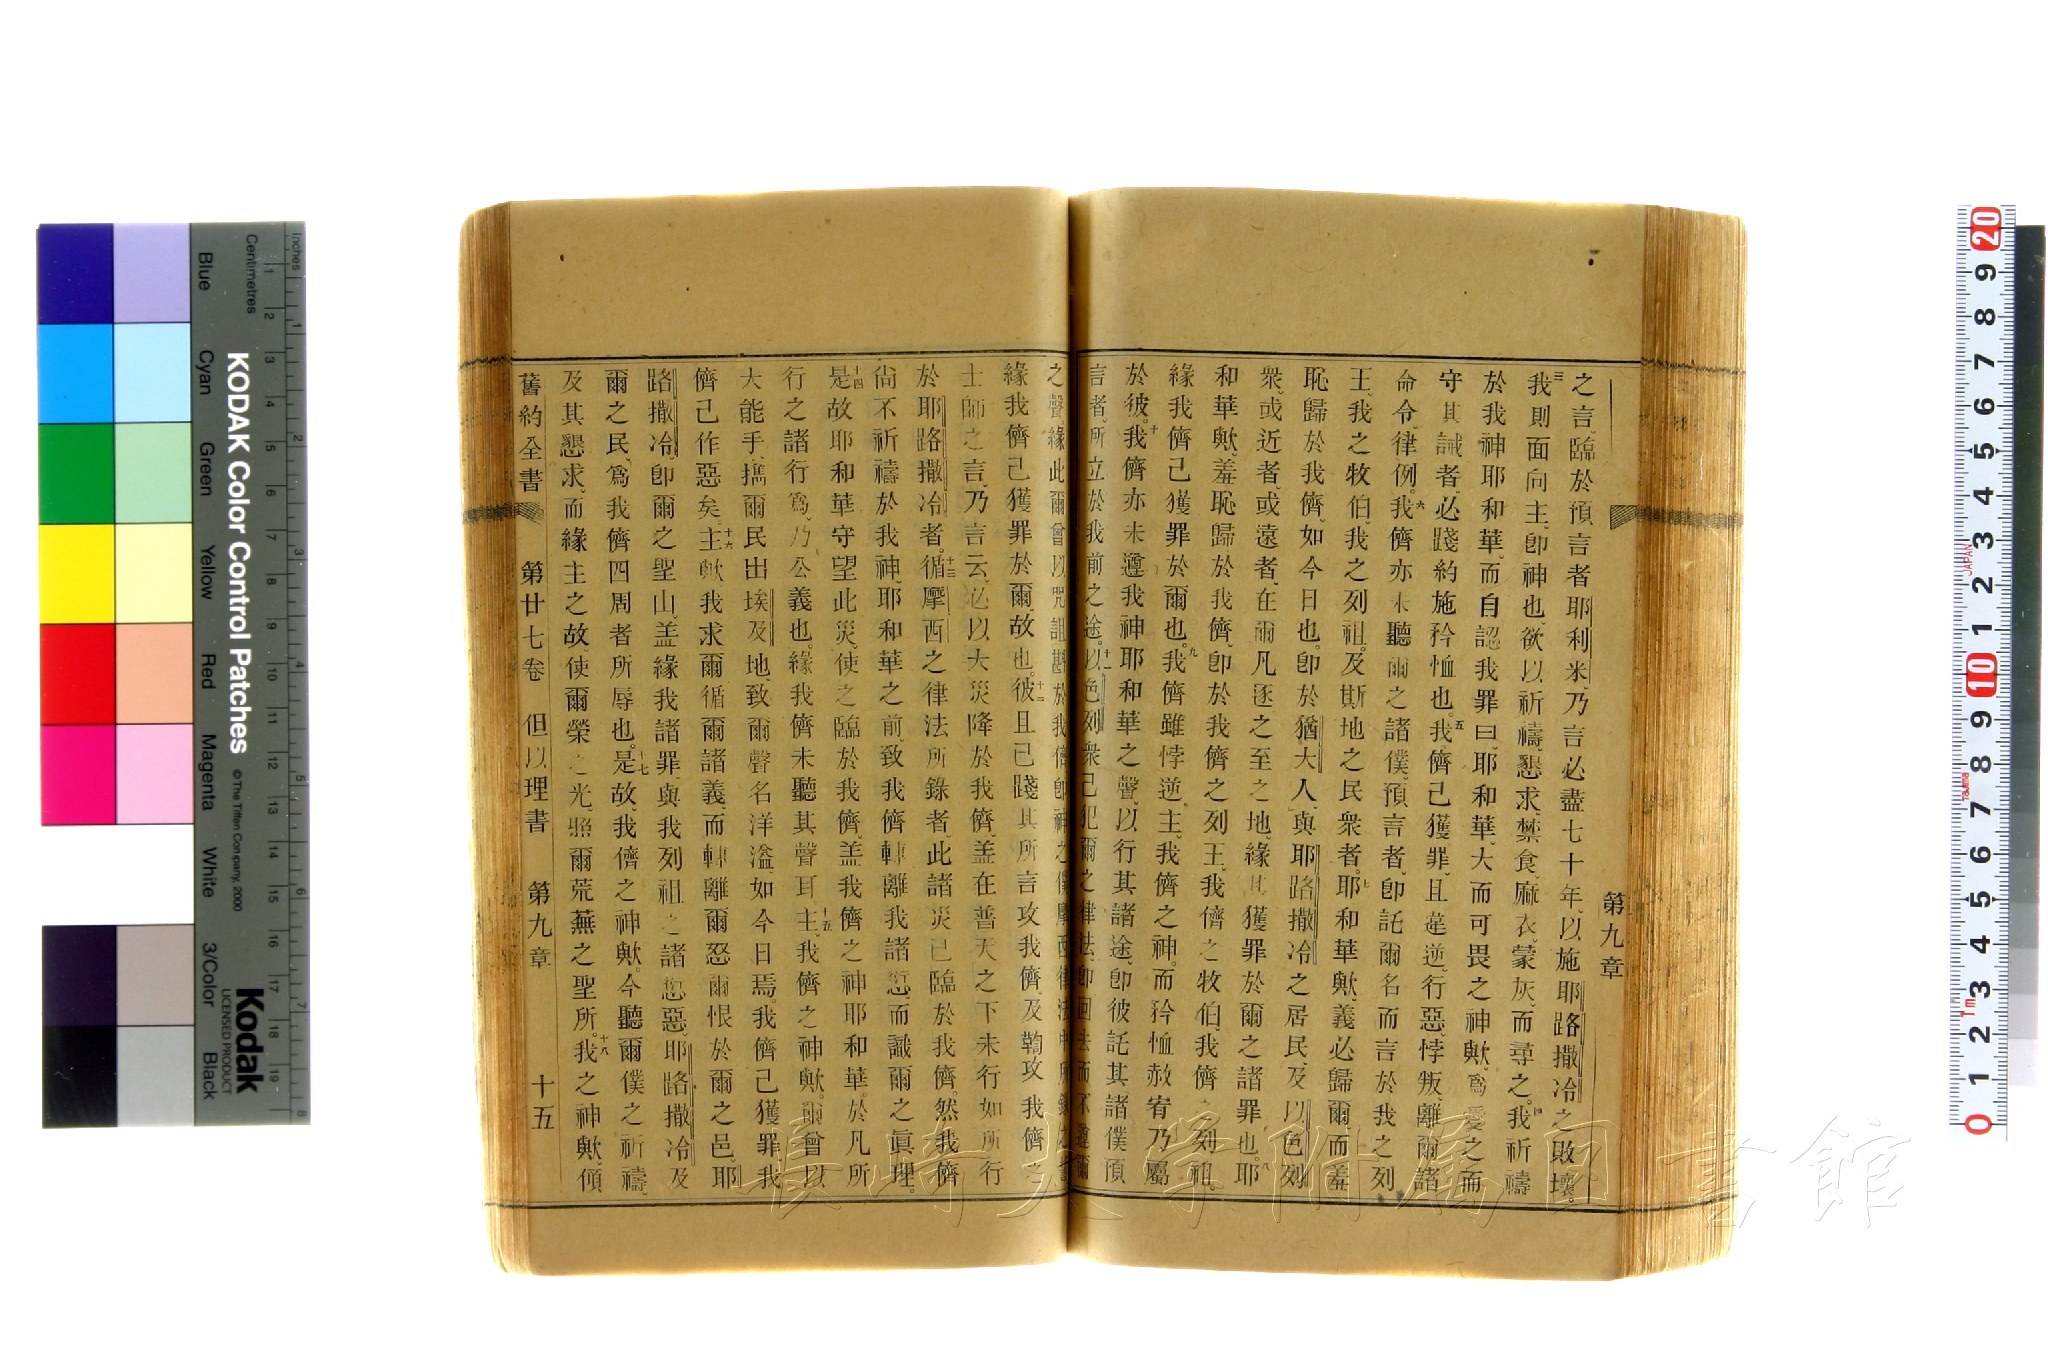 第九章
之言、臨於預言者耶利米、乃言必盡七十年、以施耶路撒冷之敗壞。
三我則面向主、卽神也、欲以祈禱、懇求、禁食、麻衣、蒙灰、而尋之。四我祈禱
於我神耶和華、而自認我罪曰、耶和華、大而可畏之神歟、爲愛之而
守其誡者、必踐約施矜恤也。五我儕已獲罪、且違逆、行惡、悖叛、離爾諸
命令、律例。六我儕亦未聽爾之諸僕、預言者、卽託爾名而言於我之列
王、我之牧伯、我之列祖、及斯地之民衆者。七耶和華歟、義必歸爾、而羞
恥歸於我儕、如今日也、卽於猶大人、與耶路撒冷之居民、及以色列
衆、或近者、或遠者、在爾凡逐之至之地、緣其獲罪於爾之諸罪也。八耶
和華歟、羞恥歸於我儕、卽於我儕之列王、我儕之牧伯、我儕之列祖。
緣我儕已獲罪於爾也。九我儕雖悖逆、主、我儕之神、而矜恤赦宥乃屬
於彼。十我儕亦未遵我神耶和華之聲、以行其諸途、卽彼託其諸僕預
言者、所立於我前之途。十一以色列衆已犯爾之律法、卽回去而不遵爾
之聲、緣此爾曾以咒詛斟於我儕、卽神之僕摩西律法中所錄之書
緣我儕已獲罪於爾、故也。十二彼且已踐其所言攻我儕、及鞫攻我儕之
士師之言、乃言云、必以大災降於我儕、盖在普天之下未行如所行
於耶路撒冷者。十三循摩西之律法所錄者、此諸災已臨於我儕。然我儕
尙不祈禱於我神、耶和華之前、致我儕轉離我諸愆、而識爾之眞理。
十四是故耶和華守望此災、使之臨於我儕、盖我儕之神耶和華、於凡所
行之諸行爲、乃公義也、緣我儕未聽其聲耳。十五主、我儕之神歟、爾曾以
大能手、攜爾民出埃及地、致爾聲名洋溢、如今日焉。我儕已獲罪、我
儕已作惡矣。十六主歟、我求爾循爾諸義、而轉離爾怒爾恨、於爾之邑、耶
路撒冷、卽爾之聖山、盖緣我諸罪、與我列祖之諸愆惡、耶路撒冷及
爾之民、爲我儕四周者所辱也。十七是故、我儕之神歟、今聽爾僕之祈禱、
及其懇求、而緣主之故、使爾榮之光、照爾荒蕪之聖所。十八我之神歟、傾
舊約全書 第廿七卷 但以理書 第九章 十五
KODAK Color Control Patches
© The Tiffen Company, 2000
Kodak
LICENSED PRODUCT
Inches
Centimetres
Blue Cyan Green Yellow Red Magenta White 3/Color Black
長崎大学附属図書館